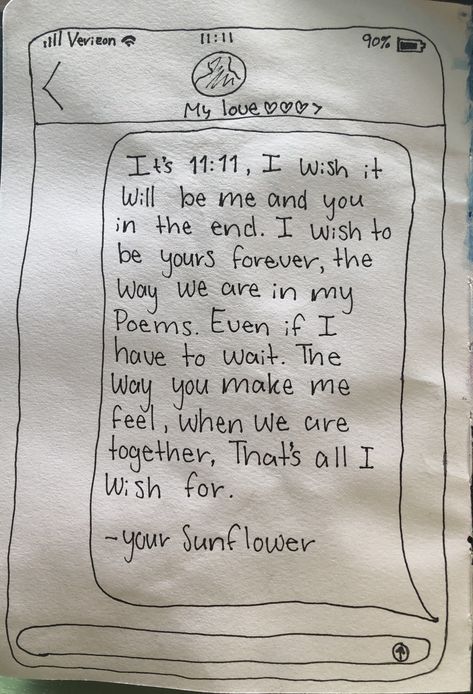 Verizon 11:11 90%
My love♡♡♡>
It's 11:11, I wish it
will be me and you
in the end. I wish to
be yours forever, the
way we are in my
Poems. Even if I
have to wait. The
way you make me
feel, when we are
together, That's all I
wish for.
-your Sunflower